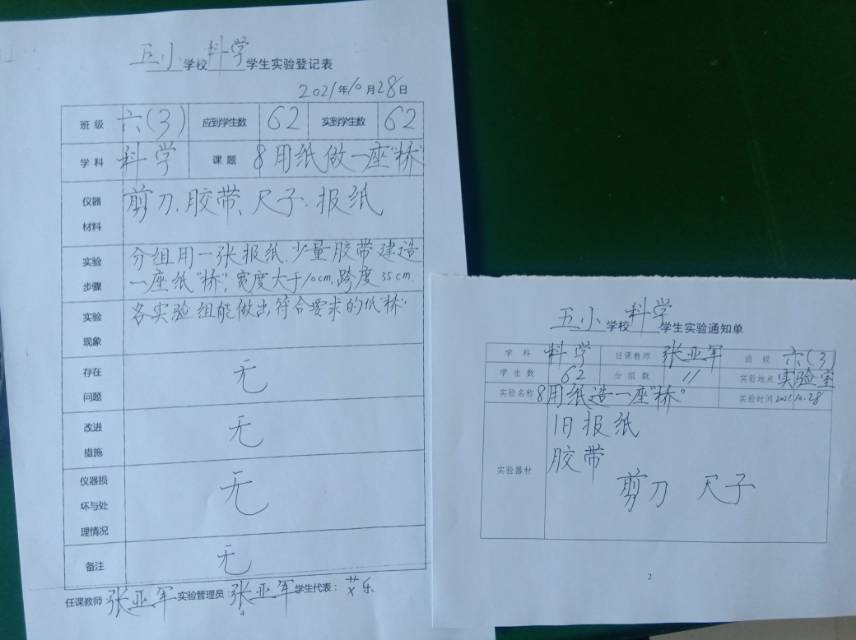 五小学校科学学生实验登记表
2021年10月28日
班级 六(3) 应到学生数 62 实到学生数 62
学科 科学 课题 8用纸做一座"桥"
仪器材料 剪刀、胶带、尺子、报纸
实验步骤 分组用一张报纸、少量胶带建造
一座纸"桥",宽度大于10cm,跨度35cm.
实验现象 各实验组能做出符合要求的纸"桥"
存在问题 无
改进措施 无
仪器损坏与处理情况 无
备注 无
任课教师 张亚军 实验管理员 张亚军 学生代表:
4
五小学校科学学生实验通知单
学科 科学 任课教师 张亚军 班级 六(3)
学生数 62 分组数 11 实验地点 实验室
实验名称 8用纸造一座"桥" 实验时间 2021.10.28
实验器材 旧报纸
胶带
剪刀 尺子
2